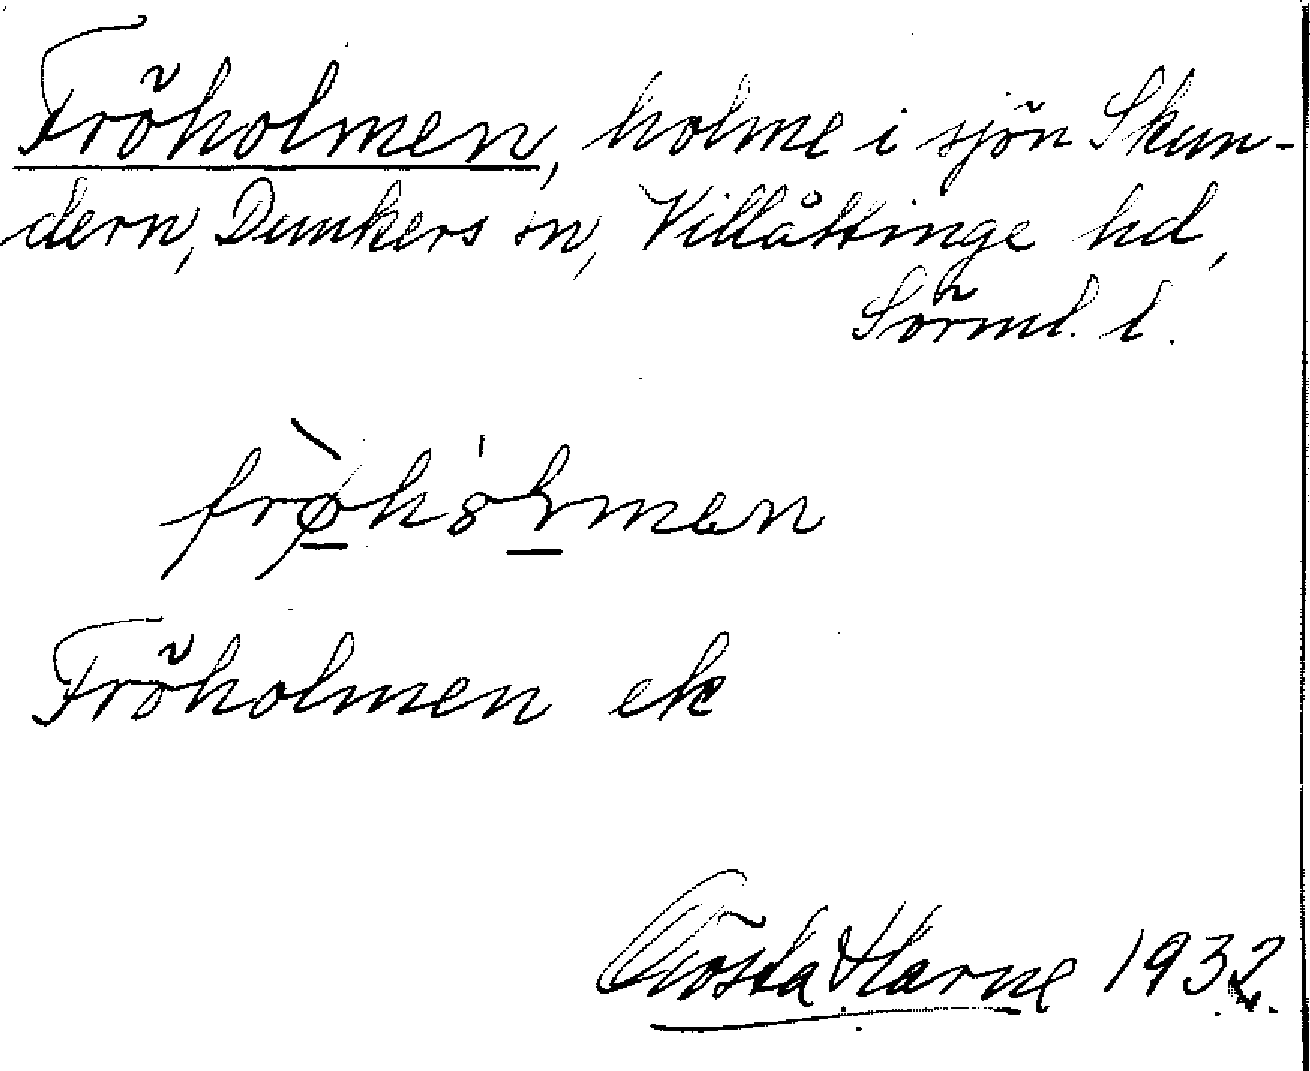 Fröholmen, holme i sjön Skun-
dern, Dunkers sn, Villåttinge hd,
Sörml. l.
frø̀hȣ́lmen
Fröholmen ek
Gösta Harne 1932.